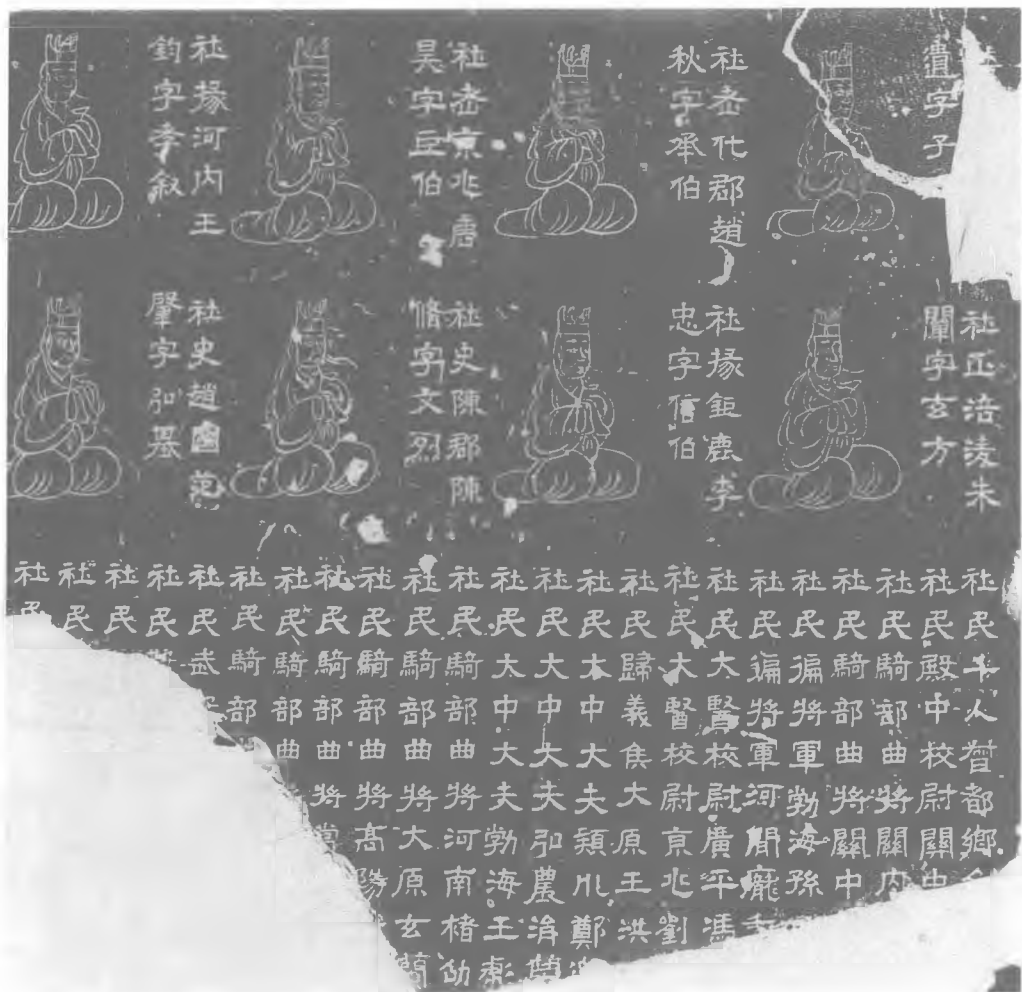 遺字子
社老代郡趙
秋字承伯
社老京兆唐
昊字巨伯
社掾河内王
鈞字孝叙
社正涪陵朱
闡字玄方
社掾鉅鹿李
忠字信伯
社史陳郡陳
脩字文烈
社史趙國范
肇字弘基
社民千人督都鄉
社民殿中校尉關中
社民騎部曲將關内
社民騎部曲將關中
社民偏將軍勃海孫
社民偏將軍河間龐
社民大醫校尉廣平馮
社民大醫校尉京兆劉
社民歸義侯大原王洪
社民太中大夫潁川鄭
社民大中大夫弘農涓
社民太中大夫勃海王
社民騎部曲將河南楮劭
社民騎部曲將大原玄
社民騎部曲將高陽
社民騎部曲將常
社民騎部曲
社民騎部
社民武
社民
社民
社民
社